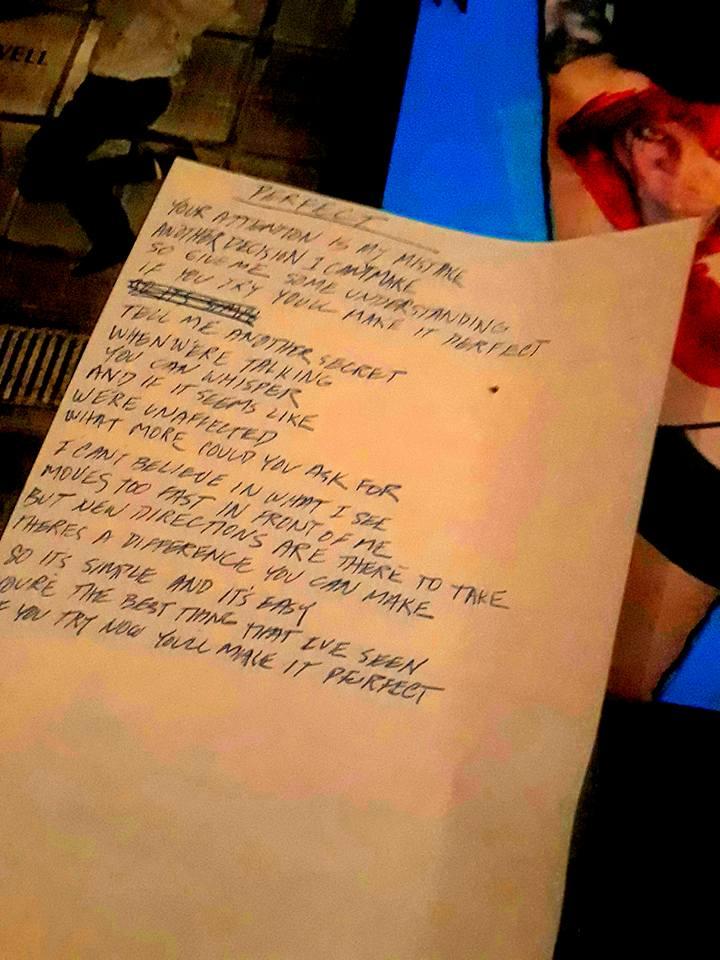 VELL
PERFECT
YOUR ATTENTION IS MY MISTAKE
ANOTHER DECISION I CAN'T MAKE
SO GIVE ME SOME UNDERSTANDING
IF YOU TRY YOU'LL MAKE IT PERFECT
SO IT'S SIMPLE
TELL ME ANOTHER SECRET
WHEN WE'RE TALKING
YOU CAN WHISPER
AND IF IT SEEMS LIKE
WE'RE UNAFFECTED
WHAT MORE COULD YOU ASK FOR
I CAN'T BELIEVE IN WHAT I SEE
MOVES TOO FAST IN FRONT OF ME
BUT NEW DIRECTIONS ARE THERE TO TAKE
THERES A DIFFERENCE YOU CAN MAKE
SO ITS SIMPLE AND IT'S EASY
YOU'RE THE BEST THING THAT I'VE SEEN
IF YOU TRY NOW YOU'LL MAKE IT PERFECT